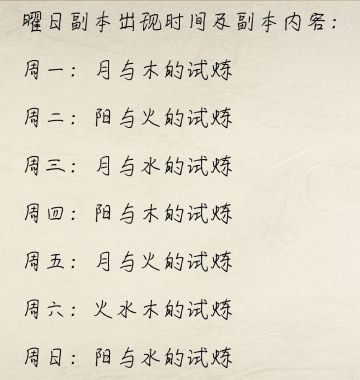 曜日副本出现时间及副本内容：
周一：月与木的试炼
周二：阳与火的试炼
周三：月与水的试炼
周四：阳与木的试炼
周五：月与火的试炼
周六：火水木的试炼
周日：阳与水的试炼